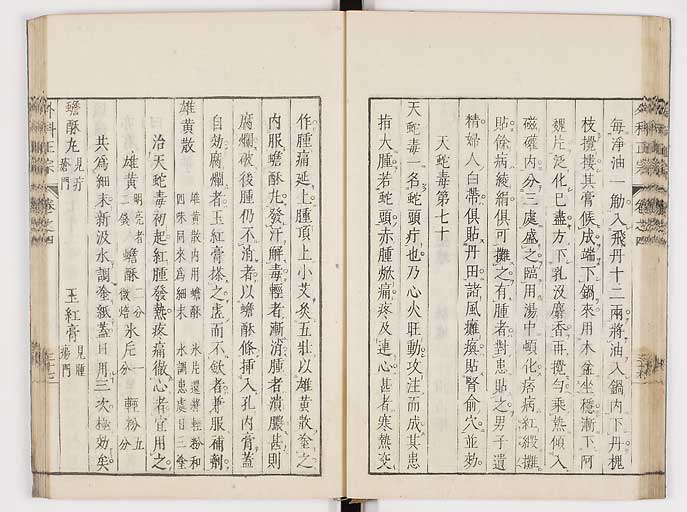 每淨油一觔入飛丹十二兩將油入鍋内下丹槐
枝攪搜其膏候成端下鍋來用木盆坐穩漸下阿
魏片泛化已盡方下乳没麝香再攪勻乘熱傾入
磁礶内分三處盛之臨用湯中頓化痞病紅緞攤
貼餘病綾絹俱可攤之有腫者對患貼之男子遺
精婦人白帶俱貼丹田諸風癱瘓貼腎俞穴並効
天蛇毒第七十
天蛇毒一名蛇頭疔也乃心火旺動攻注而成其患
指大腫若蛇頭赤腫㷔痛疼及連心甚者寒熱交
作腫痛延上腫頂上小艾灸五壯以雄黃散塗之
内服蟾酥丸發汗解毒輕者漸消腫者潰膿甚則
腐爛破後腫仍不消者以蟾酥條插入孔内膏蓋
自効腐爛者玉紅膏搽之虛而不歛者兼服補劑
雄黃散
雄黃散内用蟾酥 氷片還將輕粉和
四味同來爲細末 水調患處日三塗
治天蛇毒初起紅腫發熱疼痛徹心者宜用之
雄黃 明亮者二錢 蟾酥 二分微焙 氷片 一分 輕粉 五分
共爲細末新汲水調塗紙蓋日用三次極効矣
蟾酥丸 見疔瘡門 玉紅膏 見腫瘍門
外科正宗 卷之四